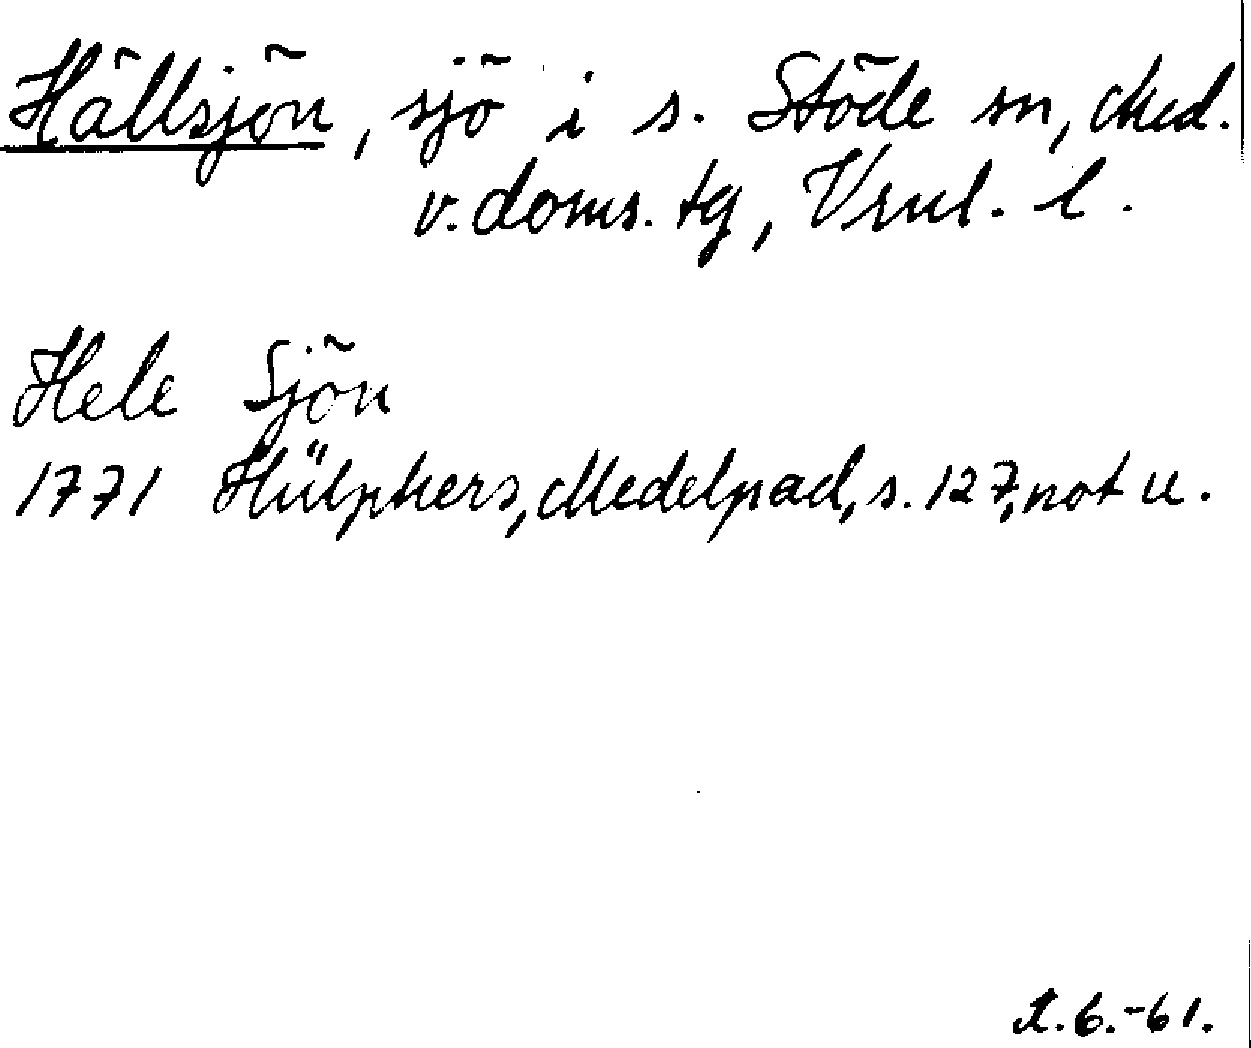 Hällsjön, sjö i s. Stöde sn, Med.
v. doms. tg, Vrnl. l.
Hele Sjön
1771 Hülphers, Medelpad, s. 127, not u.
6.-61.